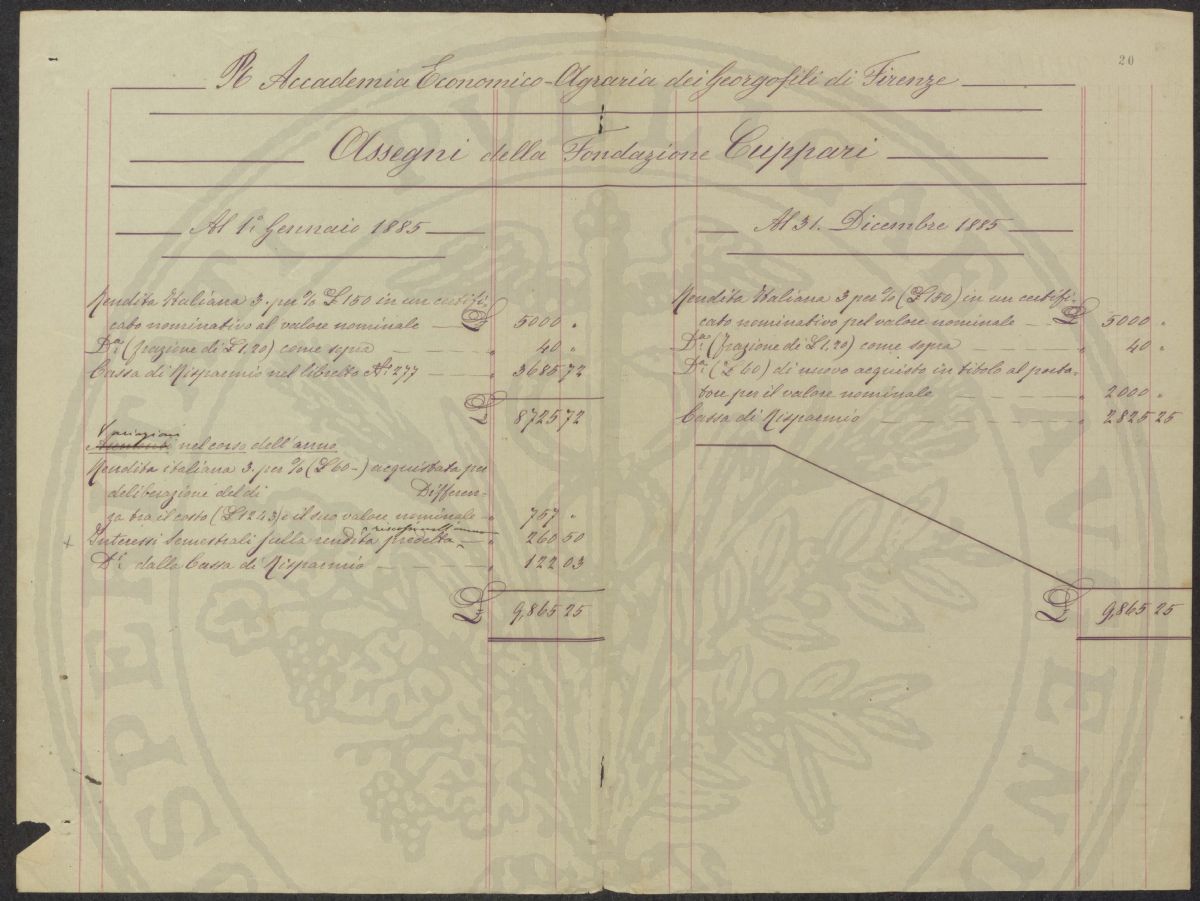 20
R Accademia Economico-Agraria dei Georgofili di Firenze
Assegni della Fondazione Cuppari
Al 1º Gennaio 1885
Rendita Italiana 3. per % £ 150 in un certifi-
cato nominativo al valore nominale — £ 5000 "
Dª (frazione di £ 1,20) come sopra — " 40 "
Cassa di Risparmio nel libretto Nº 277 — " 3685 72
£ 8725 72
Variazioni
Aumenti nel corso dell'anno
Rendita italiana 3. per % (£ 60-) acquistata per
deliberazione del di Differen-
za tra il costo (£ 1243) e il suo valore nominale - " 757 "
e riscossi nell'anno
+ Interessi semestrali sulla rendita predetta — " 260 50
Dⁱ dalla Cassa di Risparmio — " 122 03
£ 9,865 25
Al 31. Dicembre 1885
Rendita Italiana 3 per % (£ 150) in un certifi-
cato nominativo pel valore nominale — £ 5000 "
Dª (frazione di £ 1,20) come sopra — " 40 "
Dª (£ 60) di nuovo acquisto in titolo al porta-
tore per il valore nominale — " 2000 "
Cassa di Risparmio — " 2825 25
£ 9,865 25
PVBLICAE
PROSPERITATI
AVGENDAE